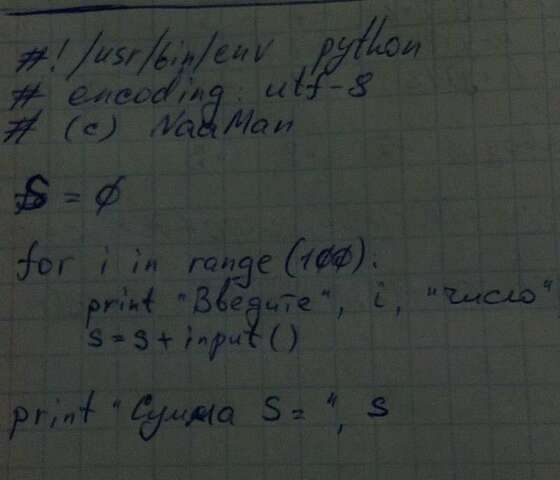 #! /usr/bin/env python
# encoding: utf-8
# (c) NaaMan
S = 0
for i in range (100):
print "Введите", i, "число"
s = s + input()
print "Сумма S = ", s